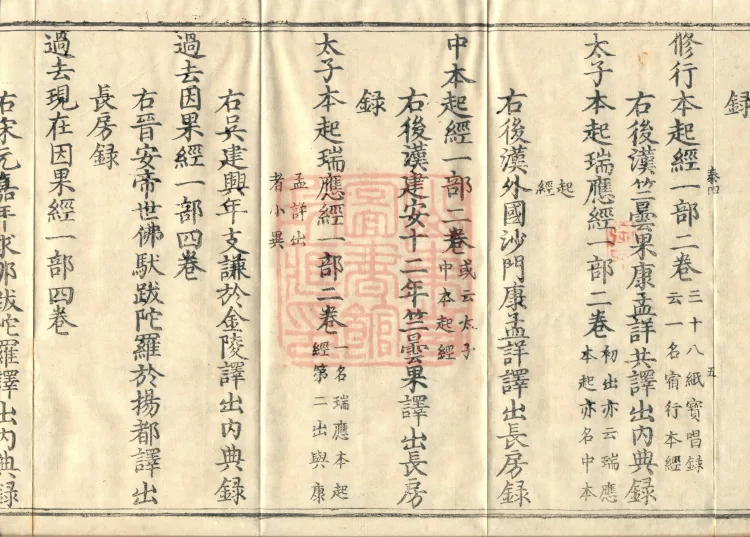 録
修行本起經一部二巻 三十八紙寳唱録
云一名宿行本經
五
右後漢竺曇果康孟詳共譯出内典録
太子本起瑞應經一部二巻 初出亦云瑞應
本起亦名中本
起
經
右後漢外國沙門康孟詳譯出長房録
中本起經一部二巻 或云太子
中本起經
右後漢建安十二年竺曇果譯出長房
録
太子本起瑞應經一部二巻 一名瑞應本起
經第二出與康
孟詳出
者小異
右吴建興年支謙於金陵譯出内典録
過去因果經一部四巻
右晉安帝世佛䭾跋陀羅於揚都譯出
長房録
過去現在因果經一部四巻
右宋元嘉年求那跋陀羅譯出内典録